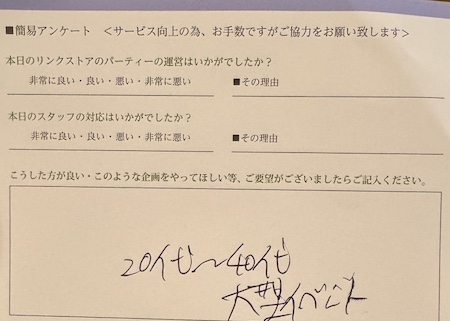 ■簡易アンケート　＜サービス向上の為、お手数ですがご協力をお願い致します＞
本日のリンクストアのパーティーの運営はいかがでしたか？
非常に良い・良い・悪い・非常に悪い　■その理由
本日のスタッフの対応はいかがでしたか？
非常に良い・良い・悪い・非常に悪い　■その理由
こうした方が良い・このような企画をやってほしい等、ご要望がございましたらご記入ください。
20代〜40代
大型イベント